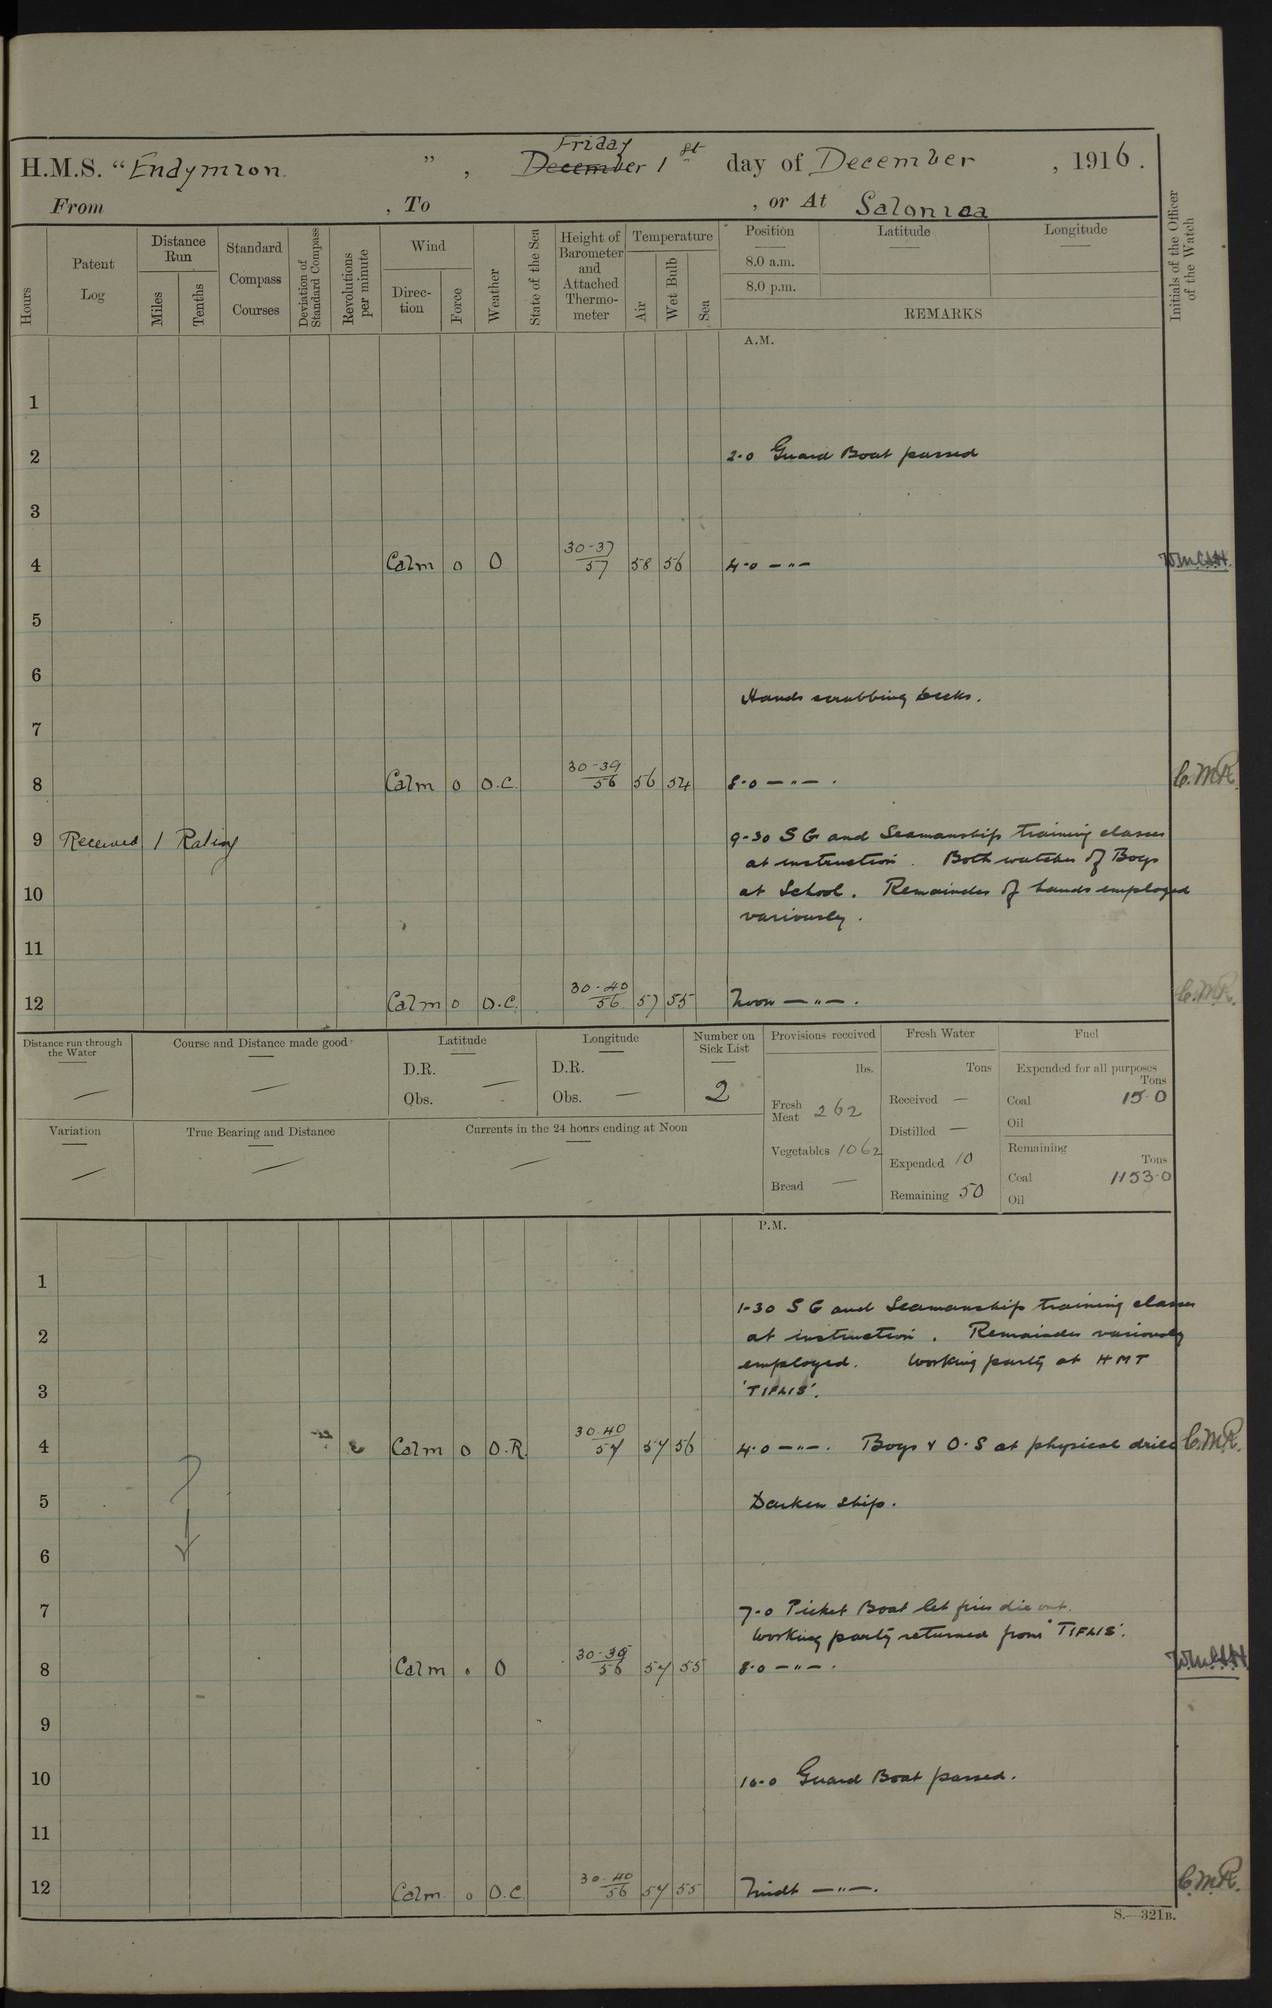 Friday
H.M.S. "Endymion ", December 1st day of December, 1916.
From , To , or At Salonica
Hours
Patent Log
Distance Run
Miles
Tenths
Standard Compass Courses
Deviation of Standard Compass
Revolutions per minute
Wind
Direction
Force
Weather
State of the Sea
Height of Barometer and Attached Thermometer
Temperature
Air
Wet Bulb
Sea
Position
8.0 a.m.
8.0 p.m.
Latitude
Longitude
REMARKS
Initials of the Officer of the Watch
A.M.
1
2 2.0 Guard Boat passed
3
4 Calm 0 O 30-37/57 58 56 4.0 — " —
5
6
Hands scrubbing decks.
7
8 Calm 0 O.C. 30-39/56 56 54 8.0 — " — . C.M.R.
9 Received 1 Rating 9-30 S G and Seamanship training classes
at instruction. Both watches of Boys
10 at School. Remainder of hands employed
variously.
11
12 Calm 0 O.C. 30-40/56 57 55 Noon — " — . C.M.R.
Distance run through the Water —
Course and Distance made good —
Latitude
D.R. —
Obs.
Longitude
D.R.
Obs. —
Number on Sick List
2
Provisions received
lbs.
Fresh Meat 262
Vegetables 1062
Bread —
Fresh Water
Tons
Received —
Distilled —
Expended 10
Remaining 50
Fuel
Expended for all purposes
Tons
Coal 15.0
Oil
Remaining
Tons
Coal 1153.0
Oil
Variation —
True Bearing and Distance —
Currents in the 24 hours ending at Noon —
P.M.
1
1-30 S G and Seamanship training classes
2 at instruction. Remainder variously
employed. Working party at HMT
3 'TIFLIS'.
4 Calm 0 O.R. 30.40/57 57 56 4.0 — " — . Boys & O.S at physical drill C.M.R.
5 Darken ship.
6
7 7.0 Picket Boat let fires die out.
Working party returned from 'TIFLIS'.
8 Calm 0 O 30-39/56 57 55 8.0 — " — .
9
10 10.0 Guard Boat passed.
11
12 Calm 0 O.C. 30-40/56 57 55 Midt — " — . C.M.R.
S.—321B.